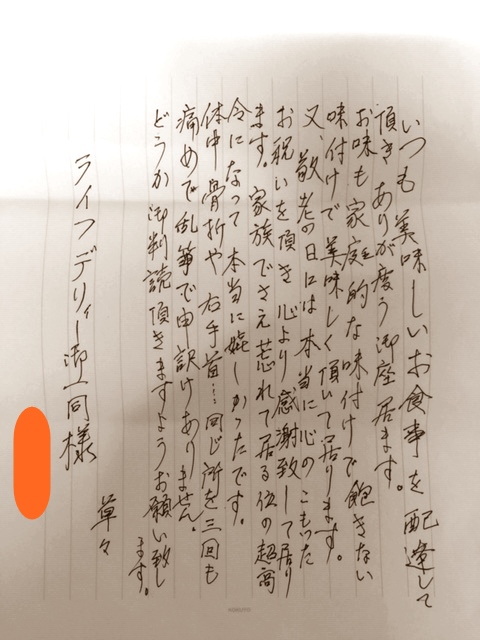 いつも美味しいお食事を配達して
頂きありが度う御座居ます。
お味も家庭的な味付けで飽きない
味付けで美味しく頂いて居ります。
又、敬老の日には本当に心のこもった
お祝いを頂き心より感謝致して居り
ます。家族でさえ忘れて居る位の超高
令になって本当に嬉しかったです。
体中骨折や右手首…同じ所を三回も
痛めて乱筆で申訳けありません。
どうか御判読頂きますようお願い致し
ます。
草々
ライフデリィー御一同様